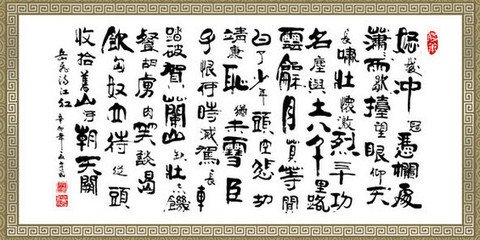 怒髮冲冠憑欄處
瀟雨歇擡望眼仰天
長嘯壯懷激烈三十功
名塵與土八千里路
雲龢月莫等閒
白了少年頭空悲切
靖康恥猶未雪臣
子恨何時滅駕長車
踏破賀蘭山缺壯志饑
餐胡虜肉笑談渴
飲匈奴血待從頭
收拾舊山河朝天闕
岳飛满江红 辛卯年